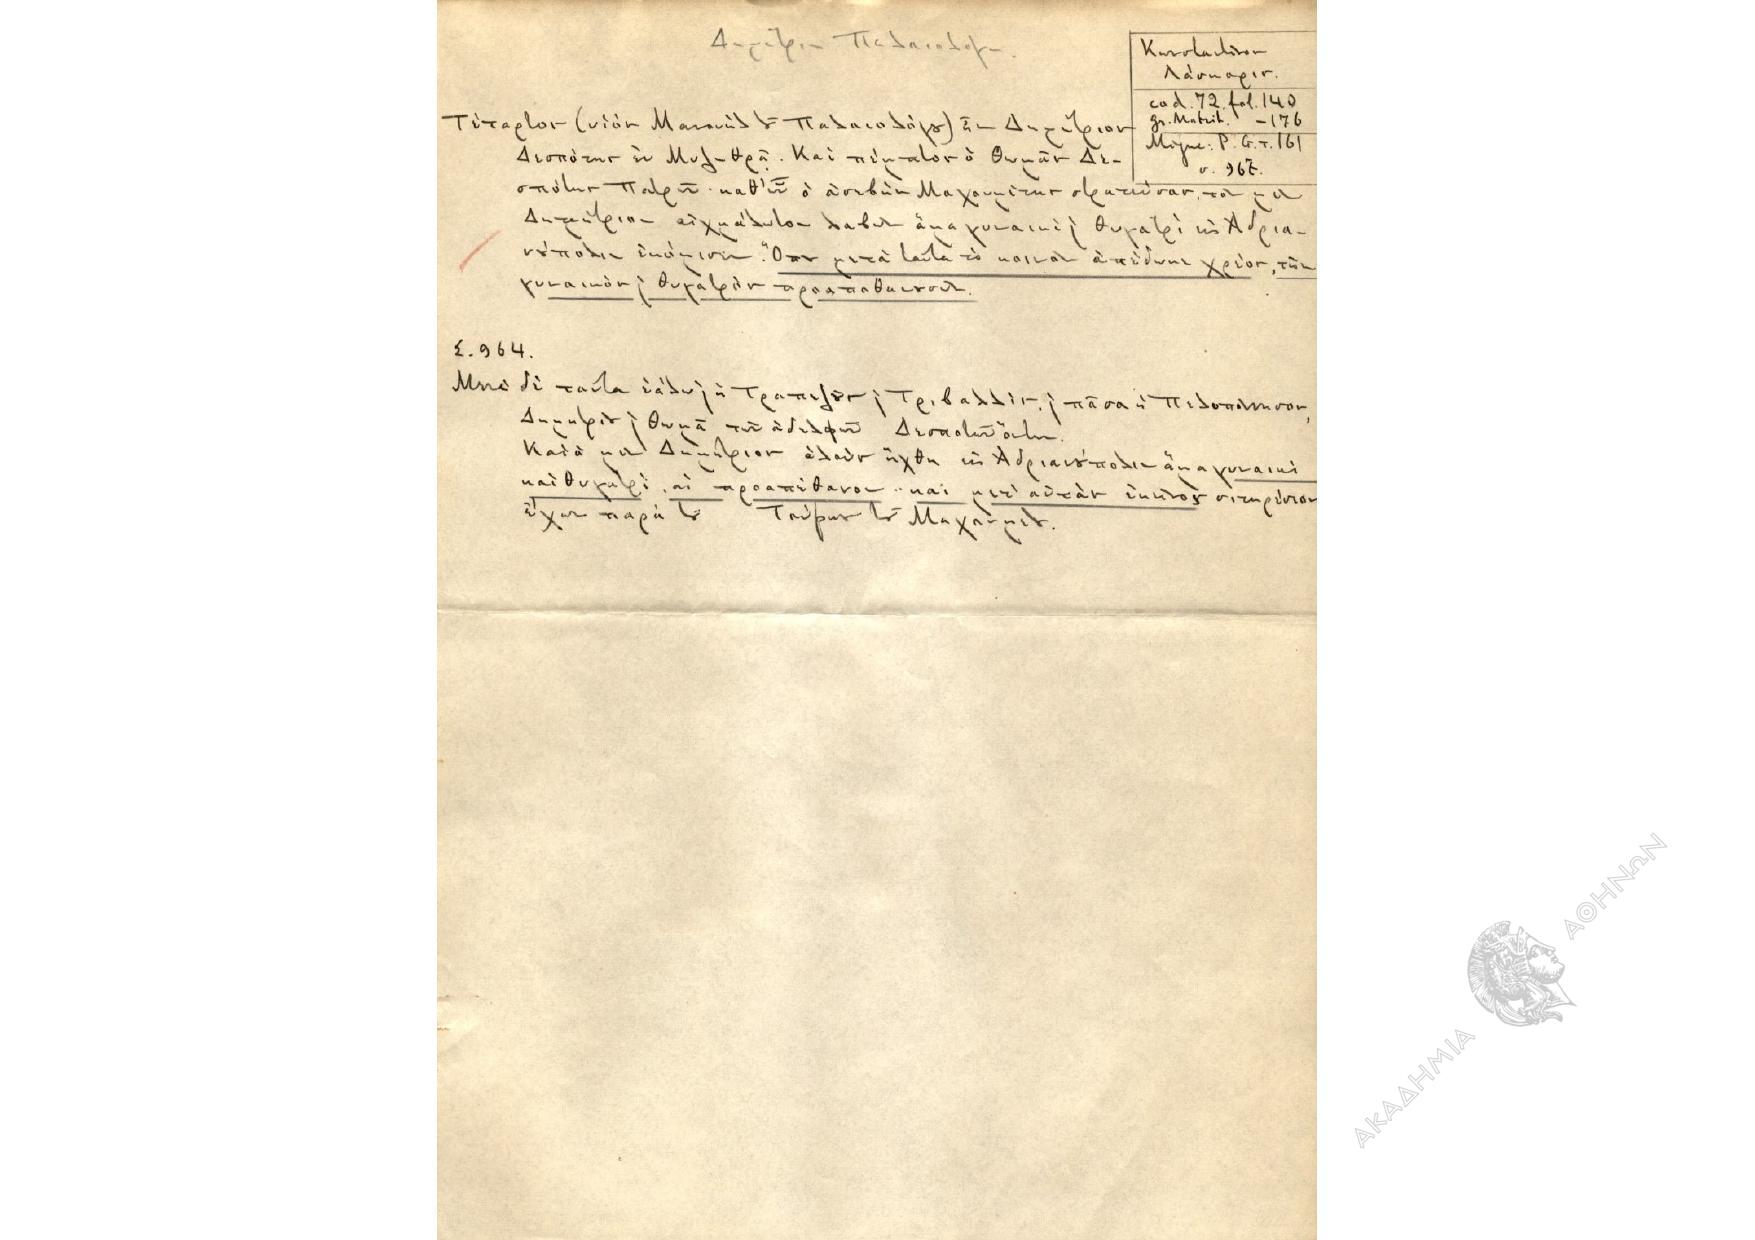 Δημήτριον Παλαιολόγον.
Κωνσταντίνου
Λάσκαρις.
cod. 72. fol. 140
gr. Matrit. -176
Migne: P. G. τ. 161
σ. 967.
Τέταρτον (υἱὸν Μανουὴλ τοῦ Παλαιολόγου) ἦν Δημήτριον
Δεσπότης ἐν Μυζηθρᾷ. Καὶ πέμπτον ὁ Θωμᾶν Δε-
σπότης Πατρῶν· καθ' ὧν ὁ ἀσεβὴς Μαχουμέτης στρατεύσας, τὸν μὲν
Δημήτριον αἰχμάλωτον λαβὼν ἅμα γυναικὶ καὶ θυγατρὶ εἰς Ἀδρια-
νούπολιν ἐκόμισεν. Ὅπου μετὰ ταῦτα τὸ κοινὸν ἀπέδωκε χρέος, τῶν
γυναικὸς καὶ θυγατρὸς προαποθανουσῶν.
Σ. 964.
Μετὰ δὲ ταῦτα ἑάλω καὶ ἡ Τραπεζοῦς καὶ Τριβαλλὶς, καὶ πᾶσα ἡ Πελοπόννησος,
Δημητρίου καὶ Θωμᾶ τῶν ἀδελφῶν Δεσποτῶν ὄντων.
Καὶ ὁ μὲν Δημήτριος ἁλοὺς ἤχθη εἰς Ἀδριανούπολιν ἅμα γυναικὶ
καὶ θυγατρὶ, αἳ προαπέθανον· καὶ μετ' αὐτὰς ἐκεῖνος σιτηρέσιον
ἔχων παρὰ τοῦ Μαχουμέτου.
ΑΚΑΔΗΜΙΑ ΑΘΗΝΩΝ